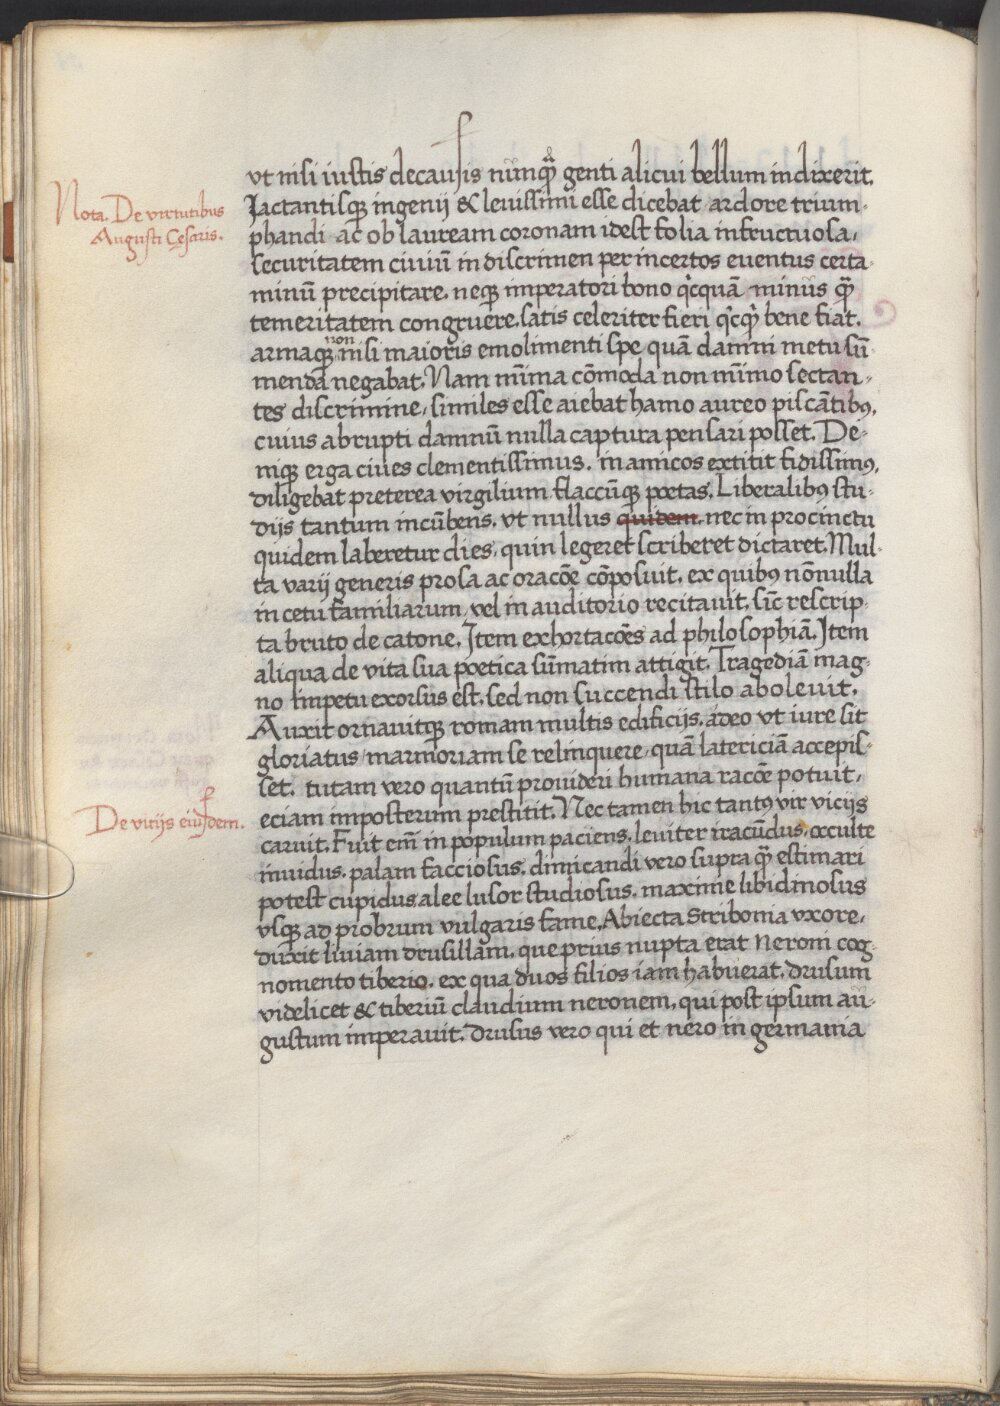 vt nisi iustis decausis nūnqꝫ̄ genti alicui bellum indixerit.
Nota. De virtutibus
Augusti Cesaris.
Jactantisqꝫ ingenij & leuissimi esse dicebat ardore trium-
phandi ac ob lauream coronam idest folia infructuosa,
securitatem ciuiū in discrimen per incertos euentus certa-
minū precipitare. neqꝫ imperatori bono qͥcquā minus qꝫ̄
temeritatem congruere. satis celeriter fieri qͥcqͥd bene fiat.
armaqꝫ non nisi maioris emolimenti spe quā damni metu sū-
menda negabat. Nam mīma cōmoda non mīmo sectan-
tes discrimine, similes esse aiebat hamo aureo piscātibꝰ,
cuius abrupti damnū nulla captura pensari posset. De-
niqꝫ erga ciues clementissimus. in amicos extitit fidissimꝰ,
diligebat preterea virgilium flaccūqꝫ poetas. Liberalibꝰ stu-
dijs tantum incūbens. vt nullus quidem. nec in procinctu
quidem laberetur dies, quin legeret scriberet dictaret. Mul-
ta varij generis prosa ac oracōe cōposuit. ex quibꝰ nōnulla
in cetu familiarum, vel in auditorio recitauit. sic̄ rescrip-
ta bruto de catone. Jtem exhortacōes ad philosophiā. Jtem
aliqua de vita sua poetica sūmatim attigit. Tragediā mag-
no impetu exorsus est. sed non succendi stilo aboleuit.
Auxit ornauitqꝫ romam multis edificijs. adeo vt iure sit
gloriatus marmoriam se relinquere, quā latericiā accepis-
set. tutam vero quantū prouideri humana racōe potuit,
De vitijs eiusdem.
eciam imposterum prestitit. Nec tamen hic tantꝰ vir vicijs
caruit. Fuit em̄ in populum paciens. leuiter iracūdus. occulte
inuidus. palam facciosus. dimicandi vero supra qꝫ̄ estimari
potest cupidus alee lusor studiosus. maxime libidinosus
vsqꝫ ad probrum vulgaris fame. Abiecta Stribonia vxore,
duxit liuiam drusillam. que prius nupta erat Neroni cog-
nomento tiberio. ex qua duos filios iam habuerat. drusum
videlicet & tiberiū claudium neronem, qui post ipsum au-
gustum imperauit. Drusus vero qui et nero in germania